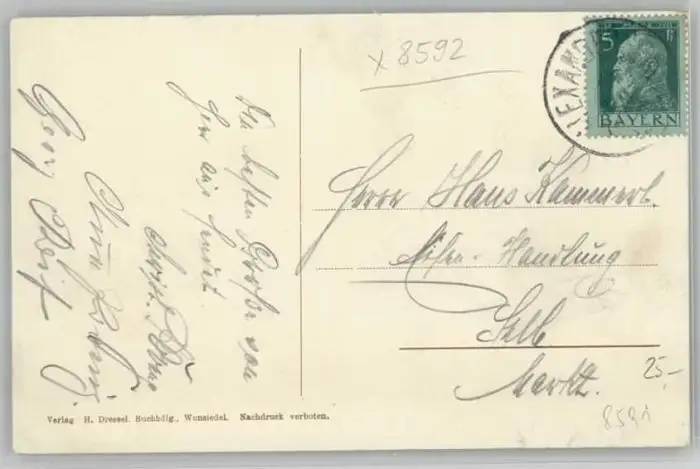 x 8592
5
BAYERN
EXAND
Die besten Grüße von
hier aus sendet
Georg
Herrn Hans Kammerl.
Eisen-Handlung
Selb
Markt.
25,-
8591
Verlag H. Dressel, Buchhdlg., Wunsiedel. Nachdruck verboten.